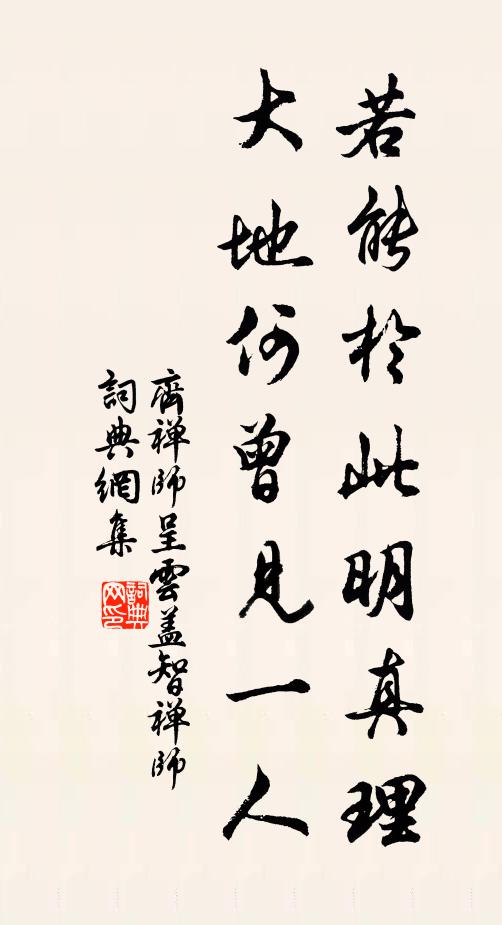 若能於此明真理
大地何曾見一人
齊禅師呈雲盖智禅師
詞典網集
詞典
网印